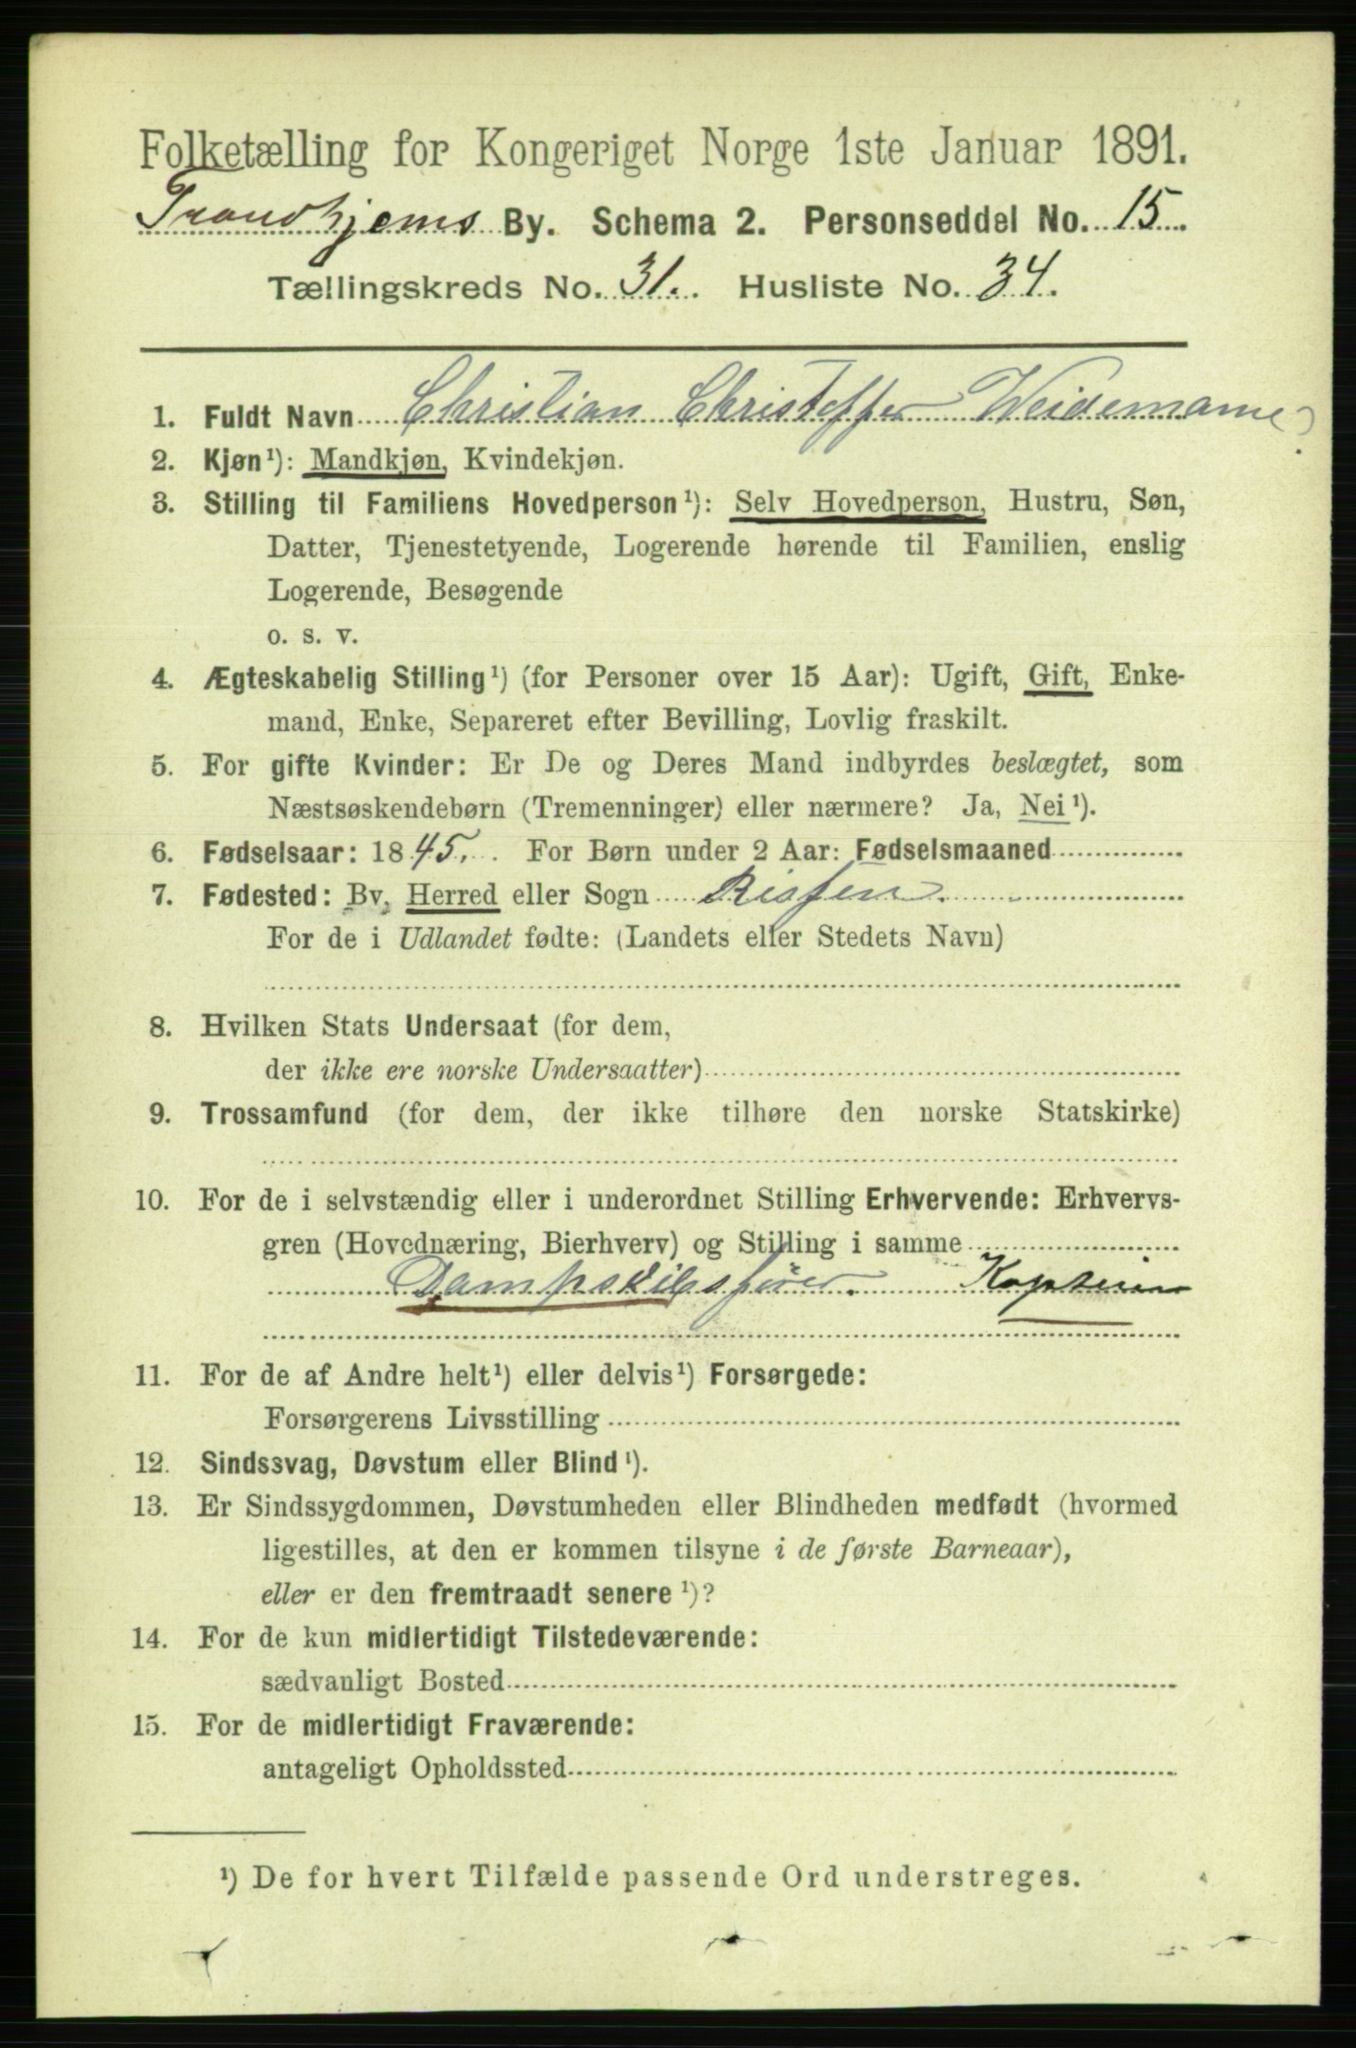 Folketælling for Kongeriget Norge 1ste Januar 1891.
Trondhjems By. Schema 2. Personseddel No. 15.
Tællingskreds No. 31. Husliste No. 34.
1. Fuldt Navn Christian Christoffer Weidemann
2. Kjøn¹): Mandkjøn, Kvindekjøn.
3. Stilling til Familiens Hovedperson¹): Selv Hovedperson, Hustru, Søn,
Datter, Tjenestetyende, Logerende hørende til Familien, enslig
Logerende, Besøgende
o. s. v.
4. Ægteskabelig Stilling¹) (for Personer over 15 Aar): Ugift, Gift, Enke-
mand, Enke, Separeret efter Bevilling, Lovlig fraskilt.
5. For gifte Kvinder: Er De og Deres Mand indbyrdes beslægtet, som
Næstsøskendebørn (Tremenninger) eller nærmere? Ja, Nei¹).
6. Fødselsaar: 1845. For Børn under 2 Aar: Fødselsmaaned
7. Fødested: By, Herred eller Sogn Rissen.
For de i Udlandet fødte: (Landets eller Stedets Navn)
8. Hvilken Stats Undersaat (for dem,
der ikke ere norske Undersaatter)
9. Trossamfund (for dem, der ikke tilhøre den norske Statskirke)
10. For de i selvstændig eller i underordnet Stilling Erhvervende: Erhvervs-
gren (Hovednæring, Bierhverv) og Stilling i samme
Dampskibsfører. Kaptein
11. For de af Andre helt¹) eller delvis¹) Forsørgede:
Forsørgerens Livsstilling
12. Sindssvag, Døvstum eller Blind¹).
13. Er Sindssygdommen, Døvstumheden eller Blindheden medfødt (hvormed
ligestilles, at den er kommen tilsyne i de første Barneaar),
eller er den fremtraadt senere¹)?
14. For de kun midlertidigt Tilstedeværende:
sædvanligt Bosted
15. For de midlertidigt Fraværende:
antageligt Opholdssted
¹) De for hvert Tilfælde passende Ord understreges.